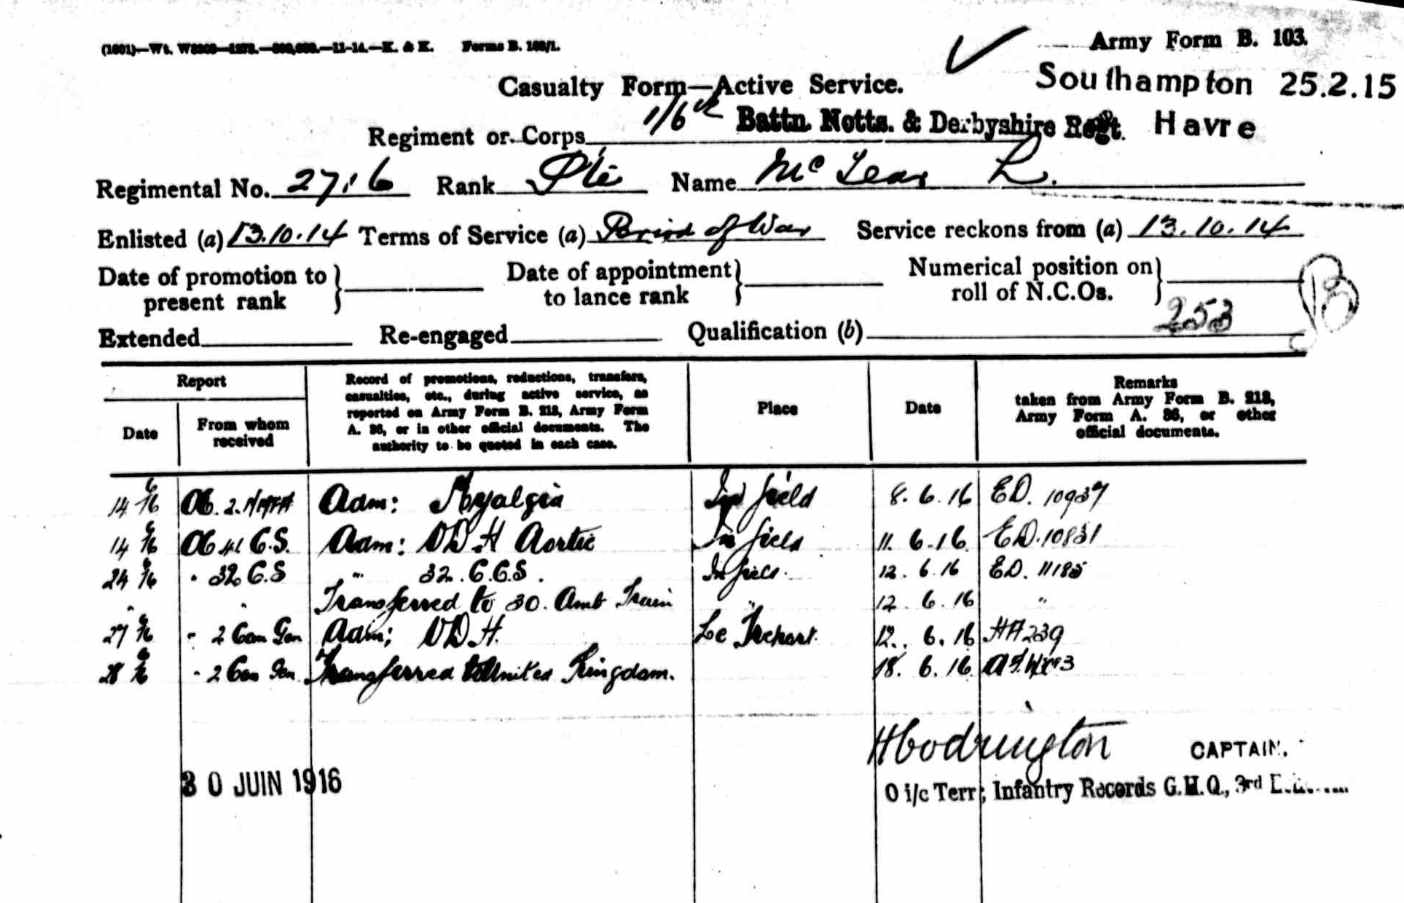 Forms B. 103/1.
Army Form B. 103.
Casualty Form—Active Service.
Southampton 25.2.15
Regiment or Corps 1/6th Battn. Notts. & Derbyshire Regt. Havre
Regimental No. 2716 Rank Pte Name McLean L.
Enlisted (a) 13.10.14 Terms of Service (a) Period of War Service reckons from (a) 13.10.14
Date of promotion to present rank } Date of appointment to lance rank } Numerical position on roll of N.C.Os. }
253
Extended Re-engaged Qualification (b)
Report
Date
From whom received
Record of promotions, reductions, transfers, casualties, etc., during active service, as reported on Army Form B. 213, Army Form A. 36, or in other official documents. The authority to be quoted in each case.
Place
Date
Remarks taken from Army Form B. 213, Army Form A. 36, or other official documents.
14 6/16 Adm: Myalgia In field 8.6.16 ED. 10937
14 6/16 Adm: VDH Aortic In field 11.6.16. ED. 10831
24 6/16 " 32 C.C.S. In field. 12.6.16 ED. 11185
" " Transferred to 30. Amb Train 12.6.16 "
27 6/16 " 2 Can Gen Adm; VDH. Le Treport. 12.6.16 HA239
28 6/16 " 2 Can Gen Transferred to United Kingdom. 18.6.16
HCodrington CAPTAIN.
30 JUIN 1916
O i/c Terr; Infantry Records G.H.Q., 3rd